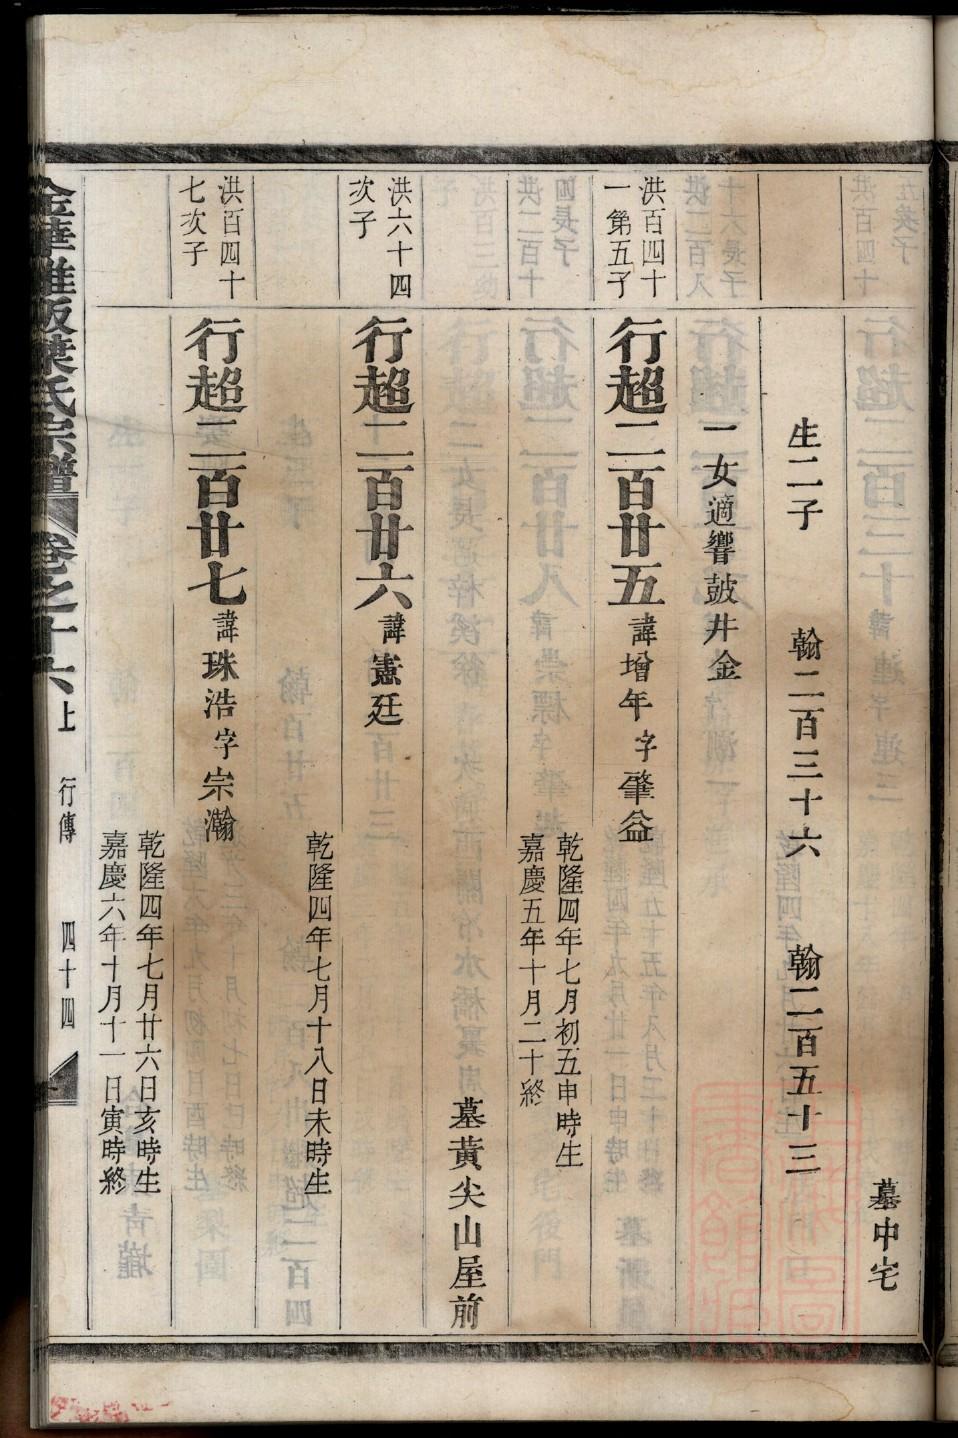 墓中宅
生二子 翰二百三十六 翰二百五十三
一女適響鼓井金
洪百四十
一第五子
行超二百廿五 諱增年字肇益
乾隆四年七月初五申時生
嘉慶五年十月二十終
墓黃尖山屋前
洪六十四
次子
行超二百廿六 諱憲廷
乾隆四年七月十八日未時生
洪百四十
七次子
行超二百廿七 諱珠浩字宗瀚
乾隆四年七月廿六日亥時生
嘉慶六年十月十一日寅時終
葉氏宗譜 卷之十六上 行傳 四十四